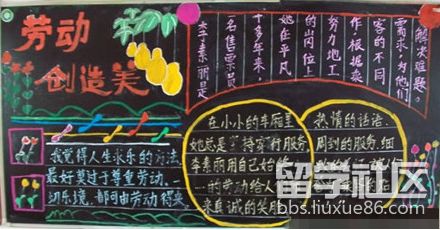 劳动
创造美
李素丽是
名售票员
十多年来，
她在平凡
的岗位上
努力地工
作，根据乘
客的不同
需求为他们
解决难题。
我觉得人生求乐的方法
最好莫过于尊重劳动.
切乐境，都可由劳动得来
在小小的车厢里
她总是 持穿行服务
李素丽用自己始终
一的劳动给人
来真诚的笑脸
热情的话语、
周到的服务、细
留学社区
bbs.liuxue86.com